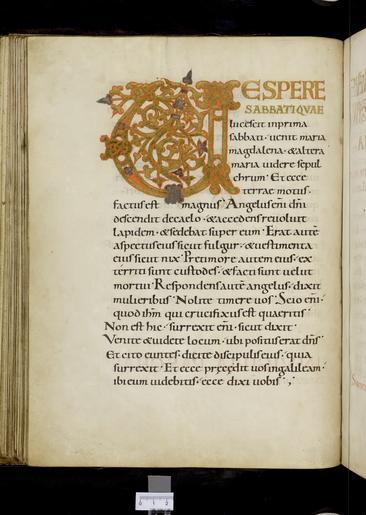 VESPERE
SABBATI QVAE
lucescit inprima
sabbati · uenit maria
magdalena · & altera
maria uidere sepul
chrum · Et ecce
terrae motus ·
factus est magnus · Angelus eni dni
descendit decaelo · & accedens reuoluit
lapidem · & sedebat super eum · Erat aute
aspectus eius sicut fulgur · & uestimenta
eius sicut nix · Pretimore autem eius · ex
territi sunt custodes · & facti sunt uelut
mortui · Respondens aute angelus · dixit
mulieribus · Nolite timere uos · Scio eni ·
quod ihm qui crucifixus est quaeritis ·
Non est hic · surrexit eni · sicut dixit ·
Venite & uidete locum · ubi positus erat dns ·
Et cito euntes · dicite discipulis eius · quia
surrexit · Et ecce praecedit uos ingalileam ·
ibi eum uidebitis · ecce dixi uobis ·,